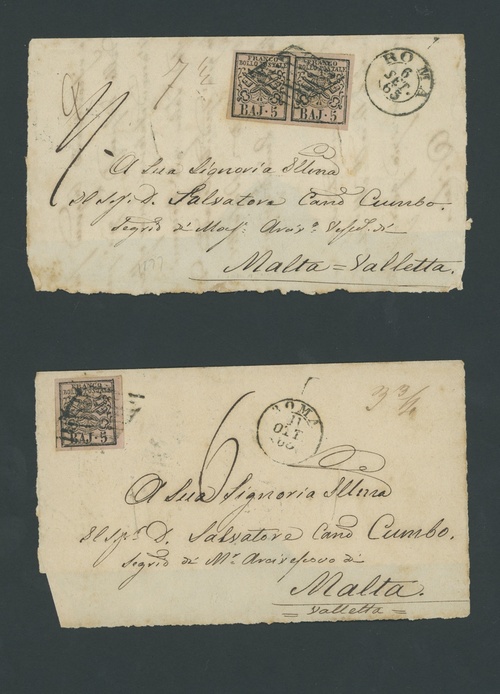 7 ½
FRANCO
BOLLO POSTALE
BAJ·5
FRANCO
BOLLO POSTALE
BAJ·5
ROMA
6
SET.
65
A Sua Signoria Illma
Salvatore Cand Cumbo.
Segrio di
Malta = Valletta.
FRANCO
BOLLO POSTALE
BAJ·5
ROMA
11
OTT
65
3 ¾
A Sua Signoria Illma
D. Salvatore Cand Cumbo.
Segrio di Mr Arcivescovo di
Malta.
= Valletta =